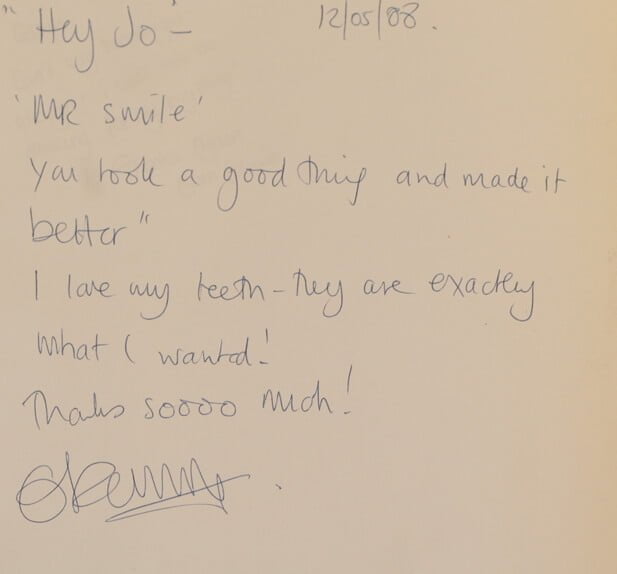 "Hey Jo - 12/05/08.
'MR smile'
You took a good thing and made it
better"
I love my teeth - they are exactly
what I wanted!
Thanks soooo much!